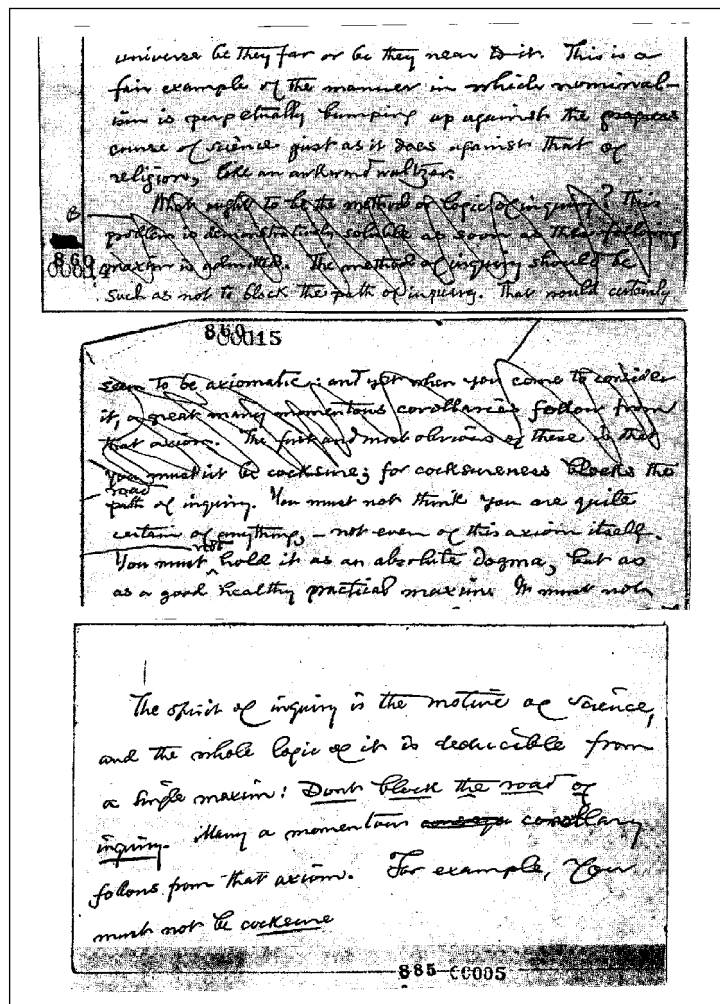 universe be they far or be they near to it. This is a
fair example of the manner in which nominal-
ism is perpetually bumping up against the progress
course of science just as it does against that of
religion, like an awkward waltzer.
What ought to be the method or logic of inquiry? This
B
problem is demonstratively soluble as soon as the following
860
00014
maxim is admitted. The method of inquiry should be
such as not to block the path of inquiry. That would certainly
860
00015
seem to be axiomatic; and yet when you come to consider
it, a great many momentous corollaries follow from
that axiom. The first and most obvious of these is that
you mustn't be cocksure; for cocksureness blocks the
road
path of inquiry. You must not think you are quite
certain of anything, – not even of this axiom itself.
not
You must ^ hold it as an absolute dogma, but as
as a good healthy practical maxim. It must not
The spirit of inquiry is the motive of science,
and the whole logic of it is deducible from
a single maxim: Dont block the road of
inquiry. Many a momentous corollary
follows from that axiom. For example, You
must not be cocksure
885 00005